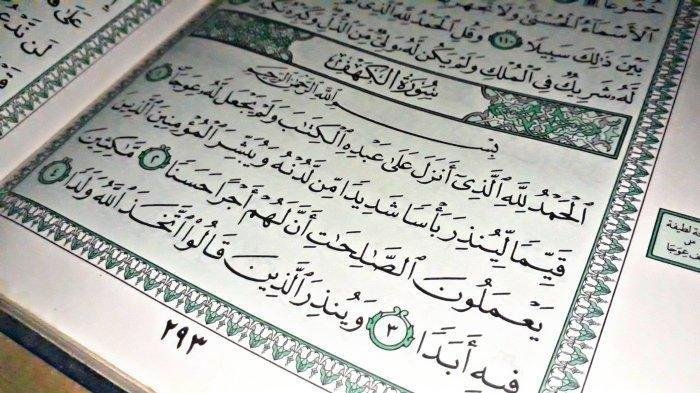 لَن نَّدْعُ
خُشُوعًا
ٱلْأَسْمَآءُ ٱلْحُسْنَىٰ وَلَا تَجْهَرْ
بَيْنَ ذَٰلِكَ سَبِيلًا ١١٠ وَقُلِ ٱلْحَمْدُ لِلَّهِ ٱلَّذِى
لَّهُۥ شَرِيكٌ فِى ٱلْمُلْكِ وَلَمْ يَكُن لَّهُۥ وَلِىٌّ مِّنَ ٱلذُّلِّ وَكَبِّرْهُ تَكْبِيرًا
سُورَةُ الكَهْفِ
بِسْمِ ٱللَّهِ ٱلرَّحْمَٰنِ ٱلرَّحِيمِ
ٱلْحَمْدُ لِلَّهِ ٱلَّذِىٓ أَنزَلَ عَلَىٰ عَبْدِهِ ٱلْكِتَٰبَ وَلَمْ يَجْعَل لَّهُۥ عِوَجَا ١
قَيِّمًا لِّيُنذِرَ بَأْسًا شَدِيدًا مِّن لَّدُنْهُ وَيُبَشِّرَ ٱلْمُؤْمِنِينَ ٱلَّذِينَ
يَعْمَلُونَ ٱلصَّٰلِحَٰتِ أَنَّ لَهُمْ أَجْرًا حَسَنًا ٢ مَّٰكِثِينَ
فِيهِ أَبَدًا ٣ وَيُنذِرَ ٱلَّذِينَ قَالُوا۟ ٱتَّخَذَ ٱللَّهُ وَلَدًا ٤
٢٩٣